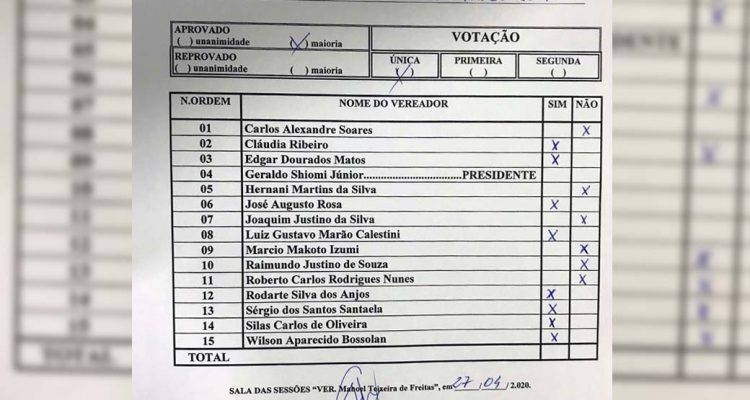 APROVADO
( ) unanimidade (X) maioria
REPROVADO
( ) unanimidade ( ) maioria
VOTAÇÃO
ÚNICA PRIMEIRA SEGUNDA
(X) ( ) ( )
N.ORDEM NOME DO VEREADOR SIM NÃO
01 Carlos Alexandre Soares X
02 Cláudia Ribeiro X
03 Edgar Dourados Matos X
04 Geraldo Shiomi Júnior.....................................PRESIDENTE
05 Hernani Martins da Silva X
06 José Augusto Rosa X
07 Joaquim Justino da Silva X
08 Luiz Gustavo Marão Calestini X
09 Marcio Makoto Izumi X
10 Raimundo Justino de Souza X
11 Roberto Carlos Rodrigues Nunes X
12 Rodarte Silva dos Anjos X
13 Sérgio dos Santos Santaela X
14 Silas Carlos de Oliveira X
15 Wilson Aparecido Bossolan X
TOTAL
SALA DAS SESSÕES “VER. Manoel Teixeira de Freitas”, em 27 / 04 / 2.020.